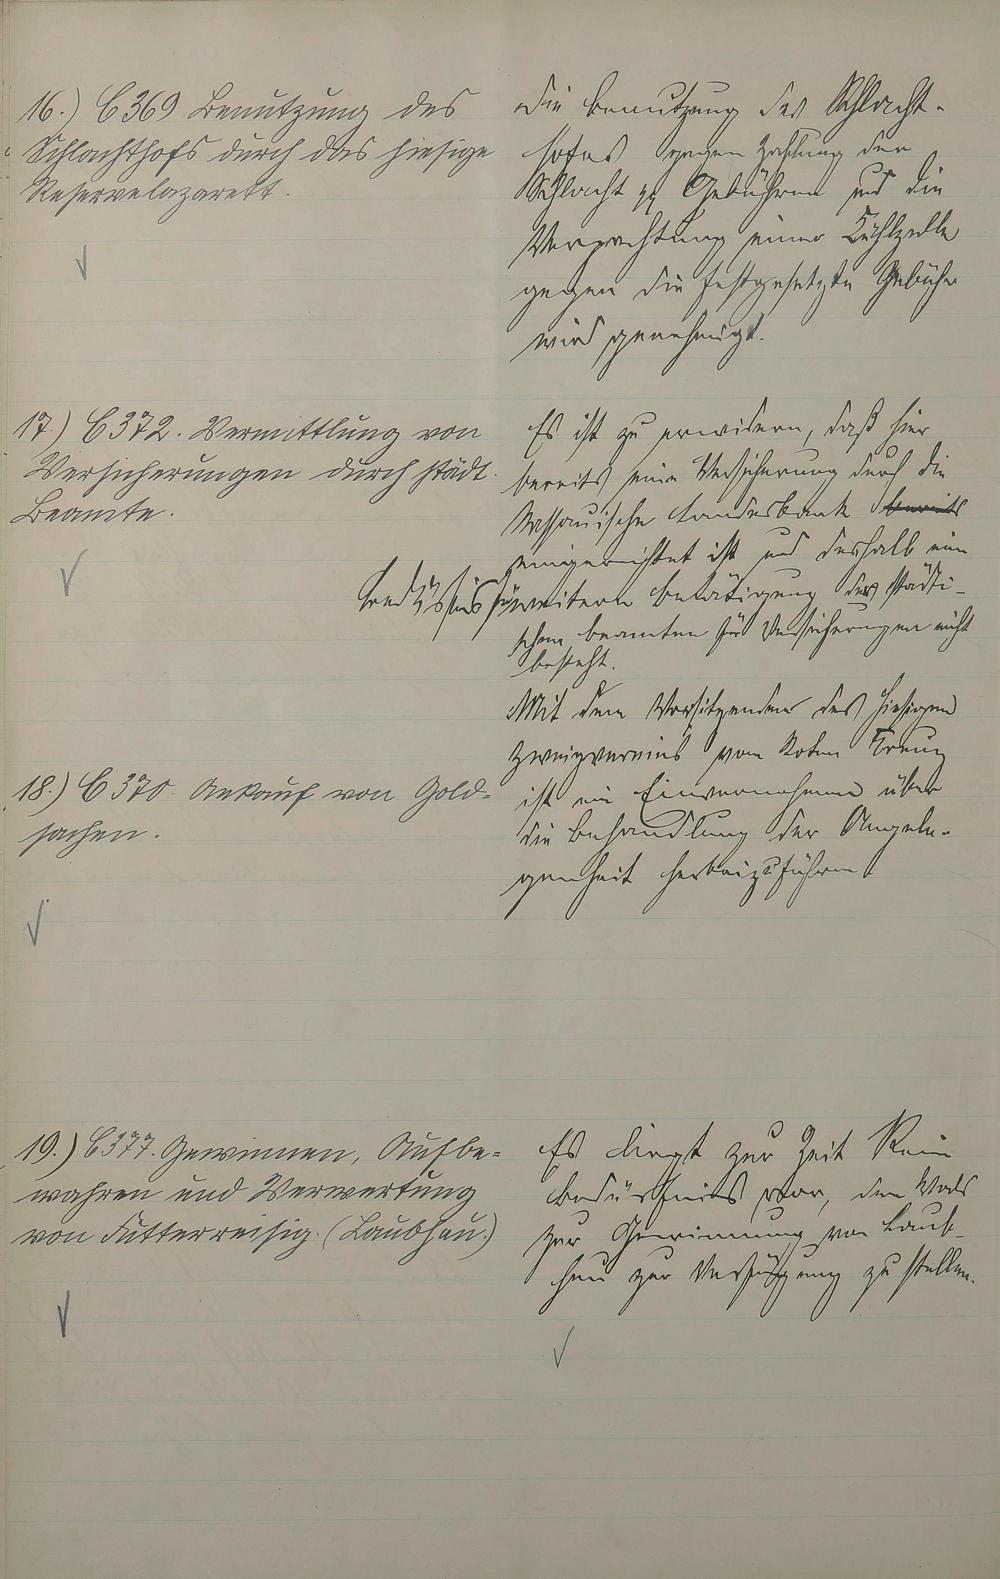 16.) C 369 Benutzung des
Schlachthofs durch das hiesige
Reservelazarett.
Die Benutzung des Schlacht-
hofes gegen Zahlung der
Schlacht pp Gebühren und die
Verpachtung einer Kühlzelle
gegen die festgesetzte Gebühr
wird genehmigt.
17.) C 372. Vermittlung von
Versicherungen durch städt.
Beamte.
Es ist zu erwidern, daß hier
bereits eine Versicherung durch die
Nassauische Landesbank bereits
eingerichtet ist und deshalb ein
Bedürfnis für weitere Betätigung der städti-
schen Beamten für Versicherungen nicht
besteht.
18.) C 370. Ankauf von Gold-
sachen.
Mit dem Vorsitzenden des hiesigen
Zweigvereins vom Roten Kreuz
ist ein Einvernehmen über
die Behandlung der Angele-
genheit herbeizuführen.
19.) C 377. Gewinnen, Aufbe-
wahren und Verwertung
von Futterreisig. (Laubheu.)
Es liegt zur Zeit kein
Bedürfnis vor, den Wald
zur Gewinnung von Laub-
heu zur Verfügung zu stellen.